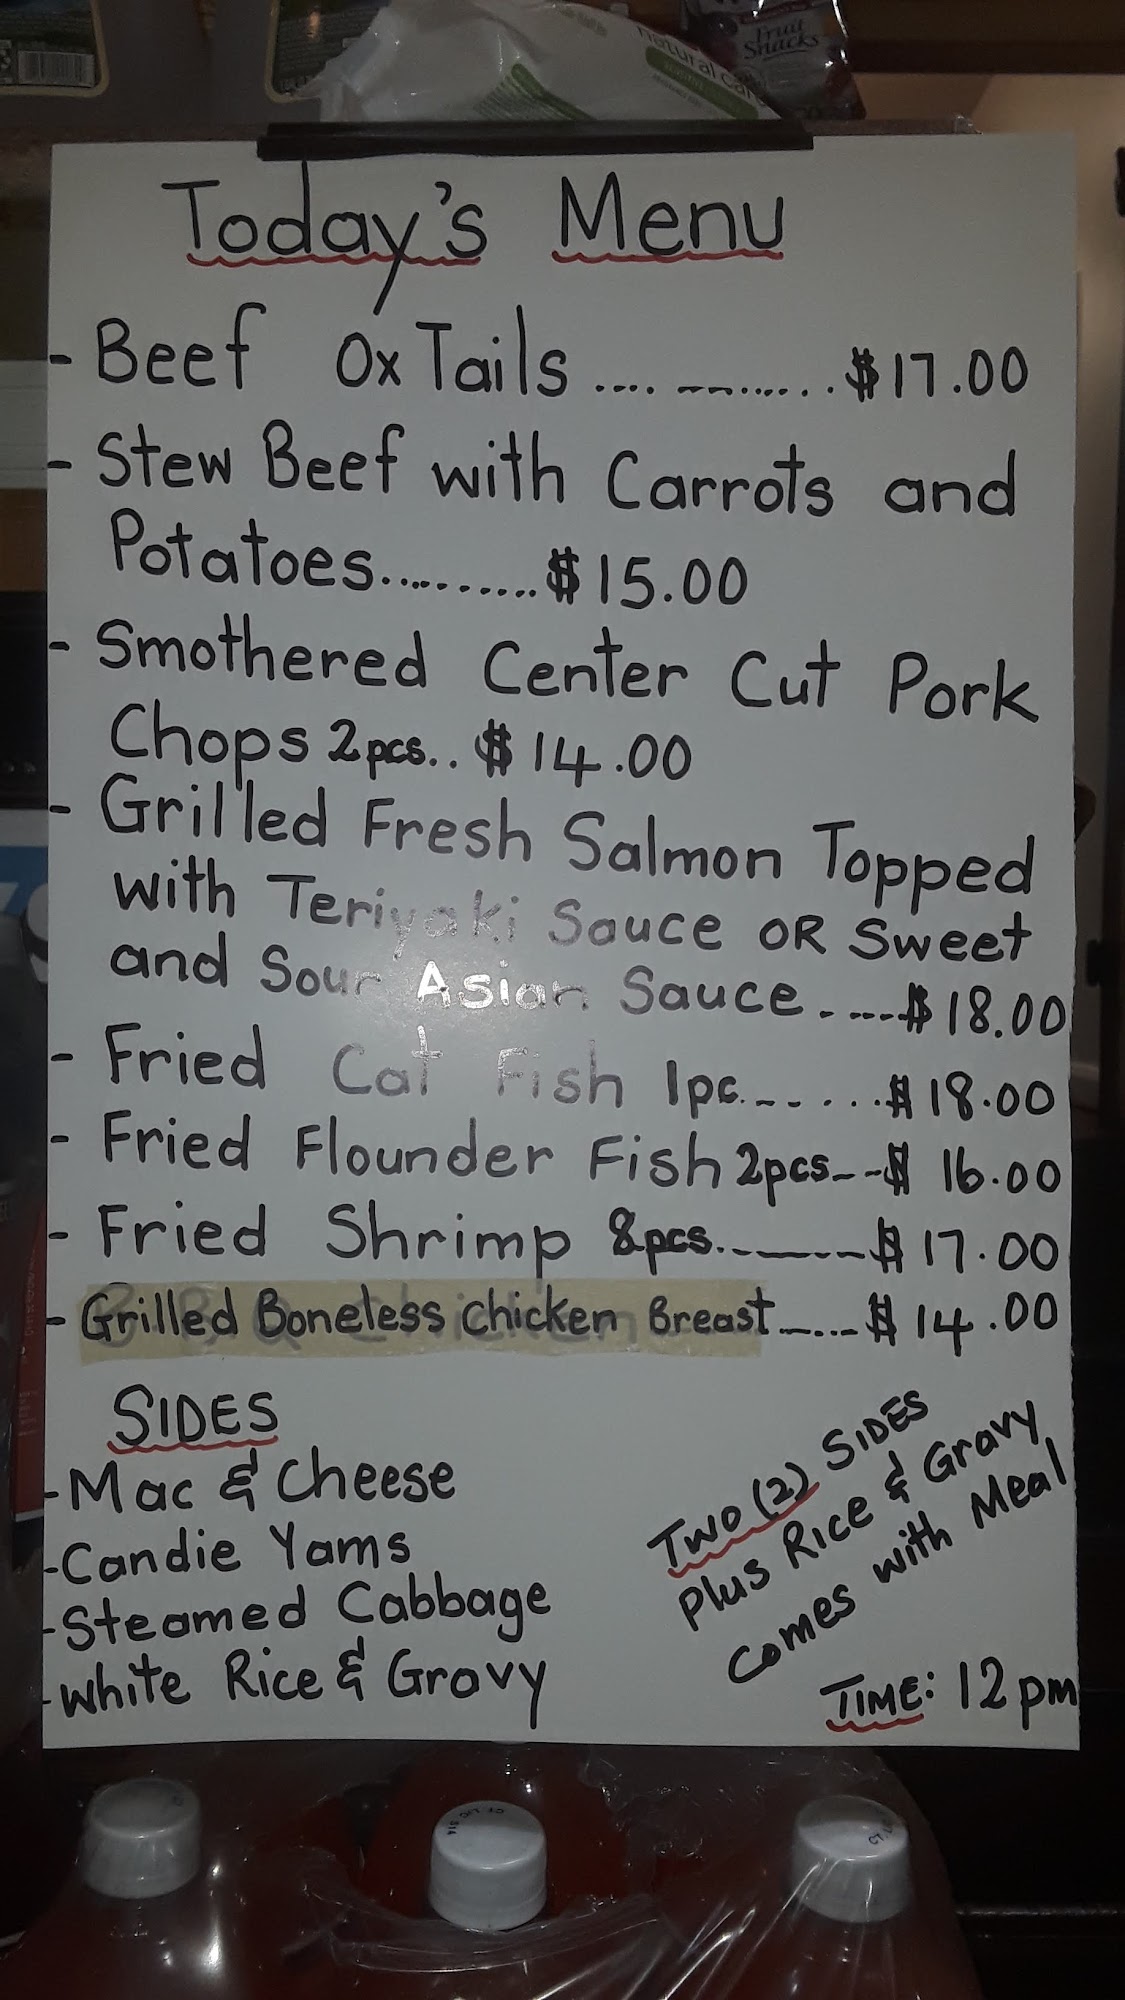 Fruit
Snacks
natural care
Today's Menu
- Beef Ox Tails .... ---...... $17.00
- Stew Beef with Carrots and
Potatoes.......... $15.00
- Smothered Center Cut Pork
Chops 2pcs.. $14.00
- Grilled Fresh Salmon Topped
with Teriyaki Sauce OR Sweet
and Sour Asian Sauce . ---- $18.00
- Fried Cat Fish 1pc. -- ..... $18.00
- Fried Flounder Fish 2pcs -- - $ 16.00
- Fried Shrimp 8pcs. ------- $ 17.00
- Grilled Boneless Chicken Breast ---... $ 14.00
SIDES
- Mac & Cheese
- Candie Yams
- Steamed Cabbage
- White Rice & Gravy
Two (2) SIDES
Plus Rice & Gravy
comes with Meal
TIME: 12 pm